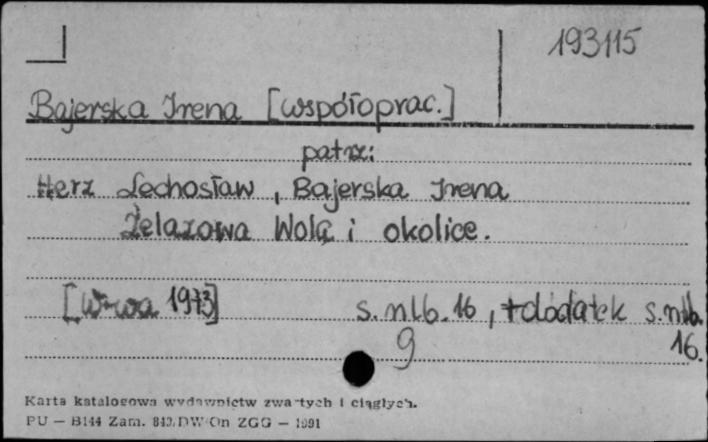 193115
Bajerska Irena [współoprac.]
patrz:
Herz Lechosław, Bajerska Irena
Żelazowa Wolą i okolice.
[W-wa 1973] s. nlb. 16, + dodatek s. nlb.
9 16.
Karta katalogowa wydawnictw zwartych i ciągłych.
PU — B144 Zam. 840. DW-On ZGG — 1991